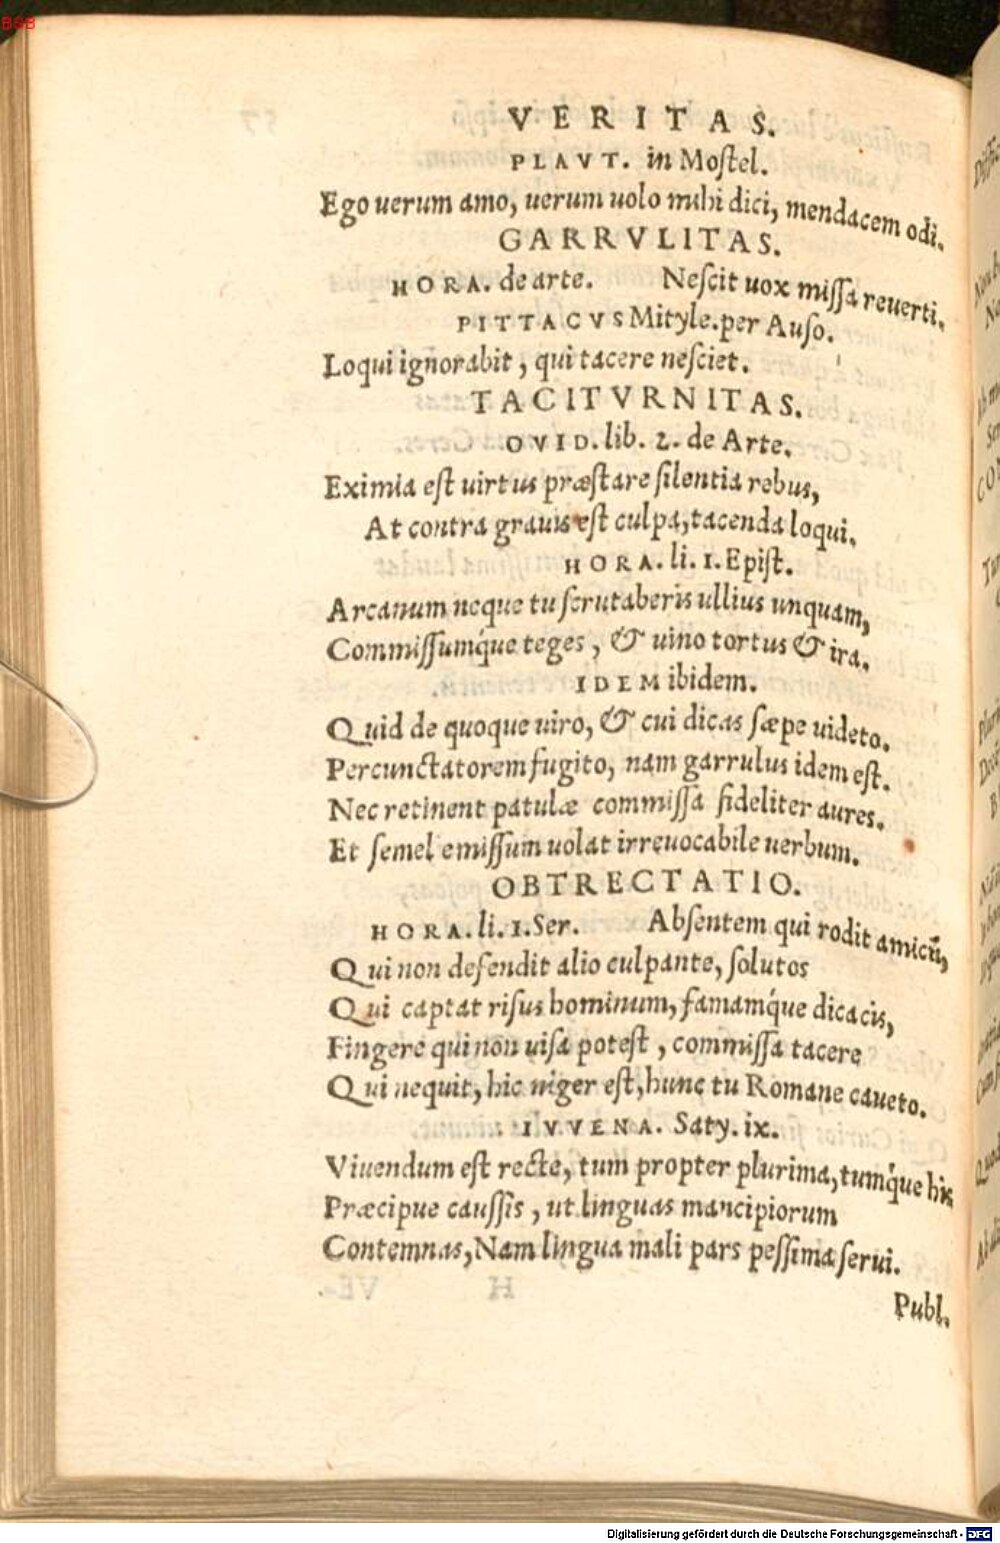 BSB
VERITAS.
PLAVT. in Mostel.
Ego uerum amo, uerum uolo mihi dici, mendacem odi.
GARRVLITAS.
HORA. de arte. Nescit uox missa reuerti.
PITTACVS Mityle. per Auso.
Loqui ignorabit, qui tacere nesciet.
TACITVRNITAS.
OVID. lib. 2. de Arte.
Eximia est uirtus præstare silentia rebus,
At contra grauis est culpa, tacenda loqui.
HORA. li. 1. Epist.
Arcanum neque tu scrutaberis ullius unquam,
Commissumq́ue teges, & uino tortus & ira.
IDEM ibidem.
Quid de quoque uiro, & cui dicas sæpe uideto.
Percunctatorem fugito, nam garrulus idem est.
Nec retinent patulæ commissa fideliter aures.
Et semel emissum uolat irreuocabile uerbum.
OBTRECTATIO.
HORA. li. 1. Ser. Absentem qui rodit amicũ,
Qui non defendit alio culpante, solutos
Qui captat risus hominum, famamq́ue dicacis,
Fingere qui non uisa potest, commissa tacere
Qui nequit, hic niger est, hunc tu Romane caueto.
IVVENA. Saty. ix.
Viuendum est recte, tum propter plurima, tumq́ue his
Præcipue caussis, ut linguas mancipiorum
Contemnas, Nam lingua mali pars pessima serui.
Publ.
Digitalisierung gefördert durch die Deutsche Forschungsgemeinschaft - DFG